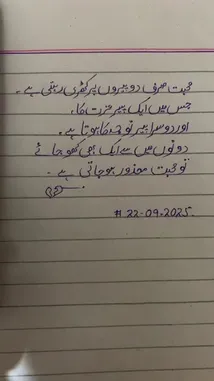 محبت صرف دو پیروں پر کھڑی رہتی ہے۔
جس میں ایک پیر عزت کا،
اور دوسرا پیر توجہ کا ہوتا ہے۔
دونوں میں سے ایک بھی کھو جائے
تو محبت معذور ہو جاتی ہے۔
# 22-09-2025.